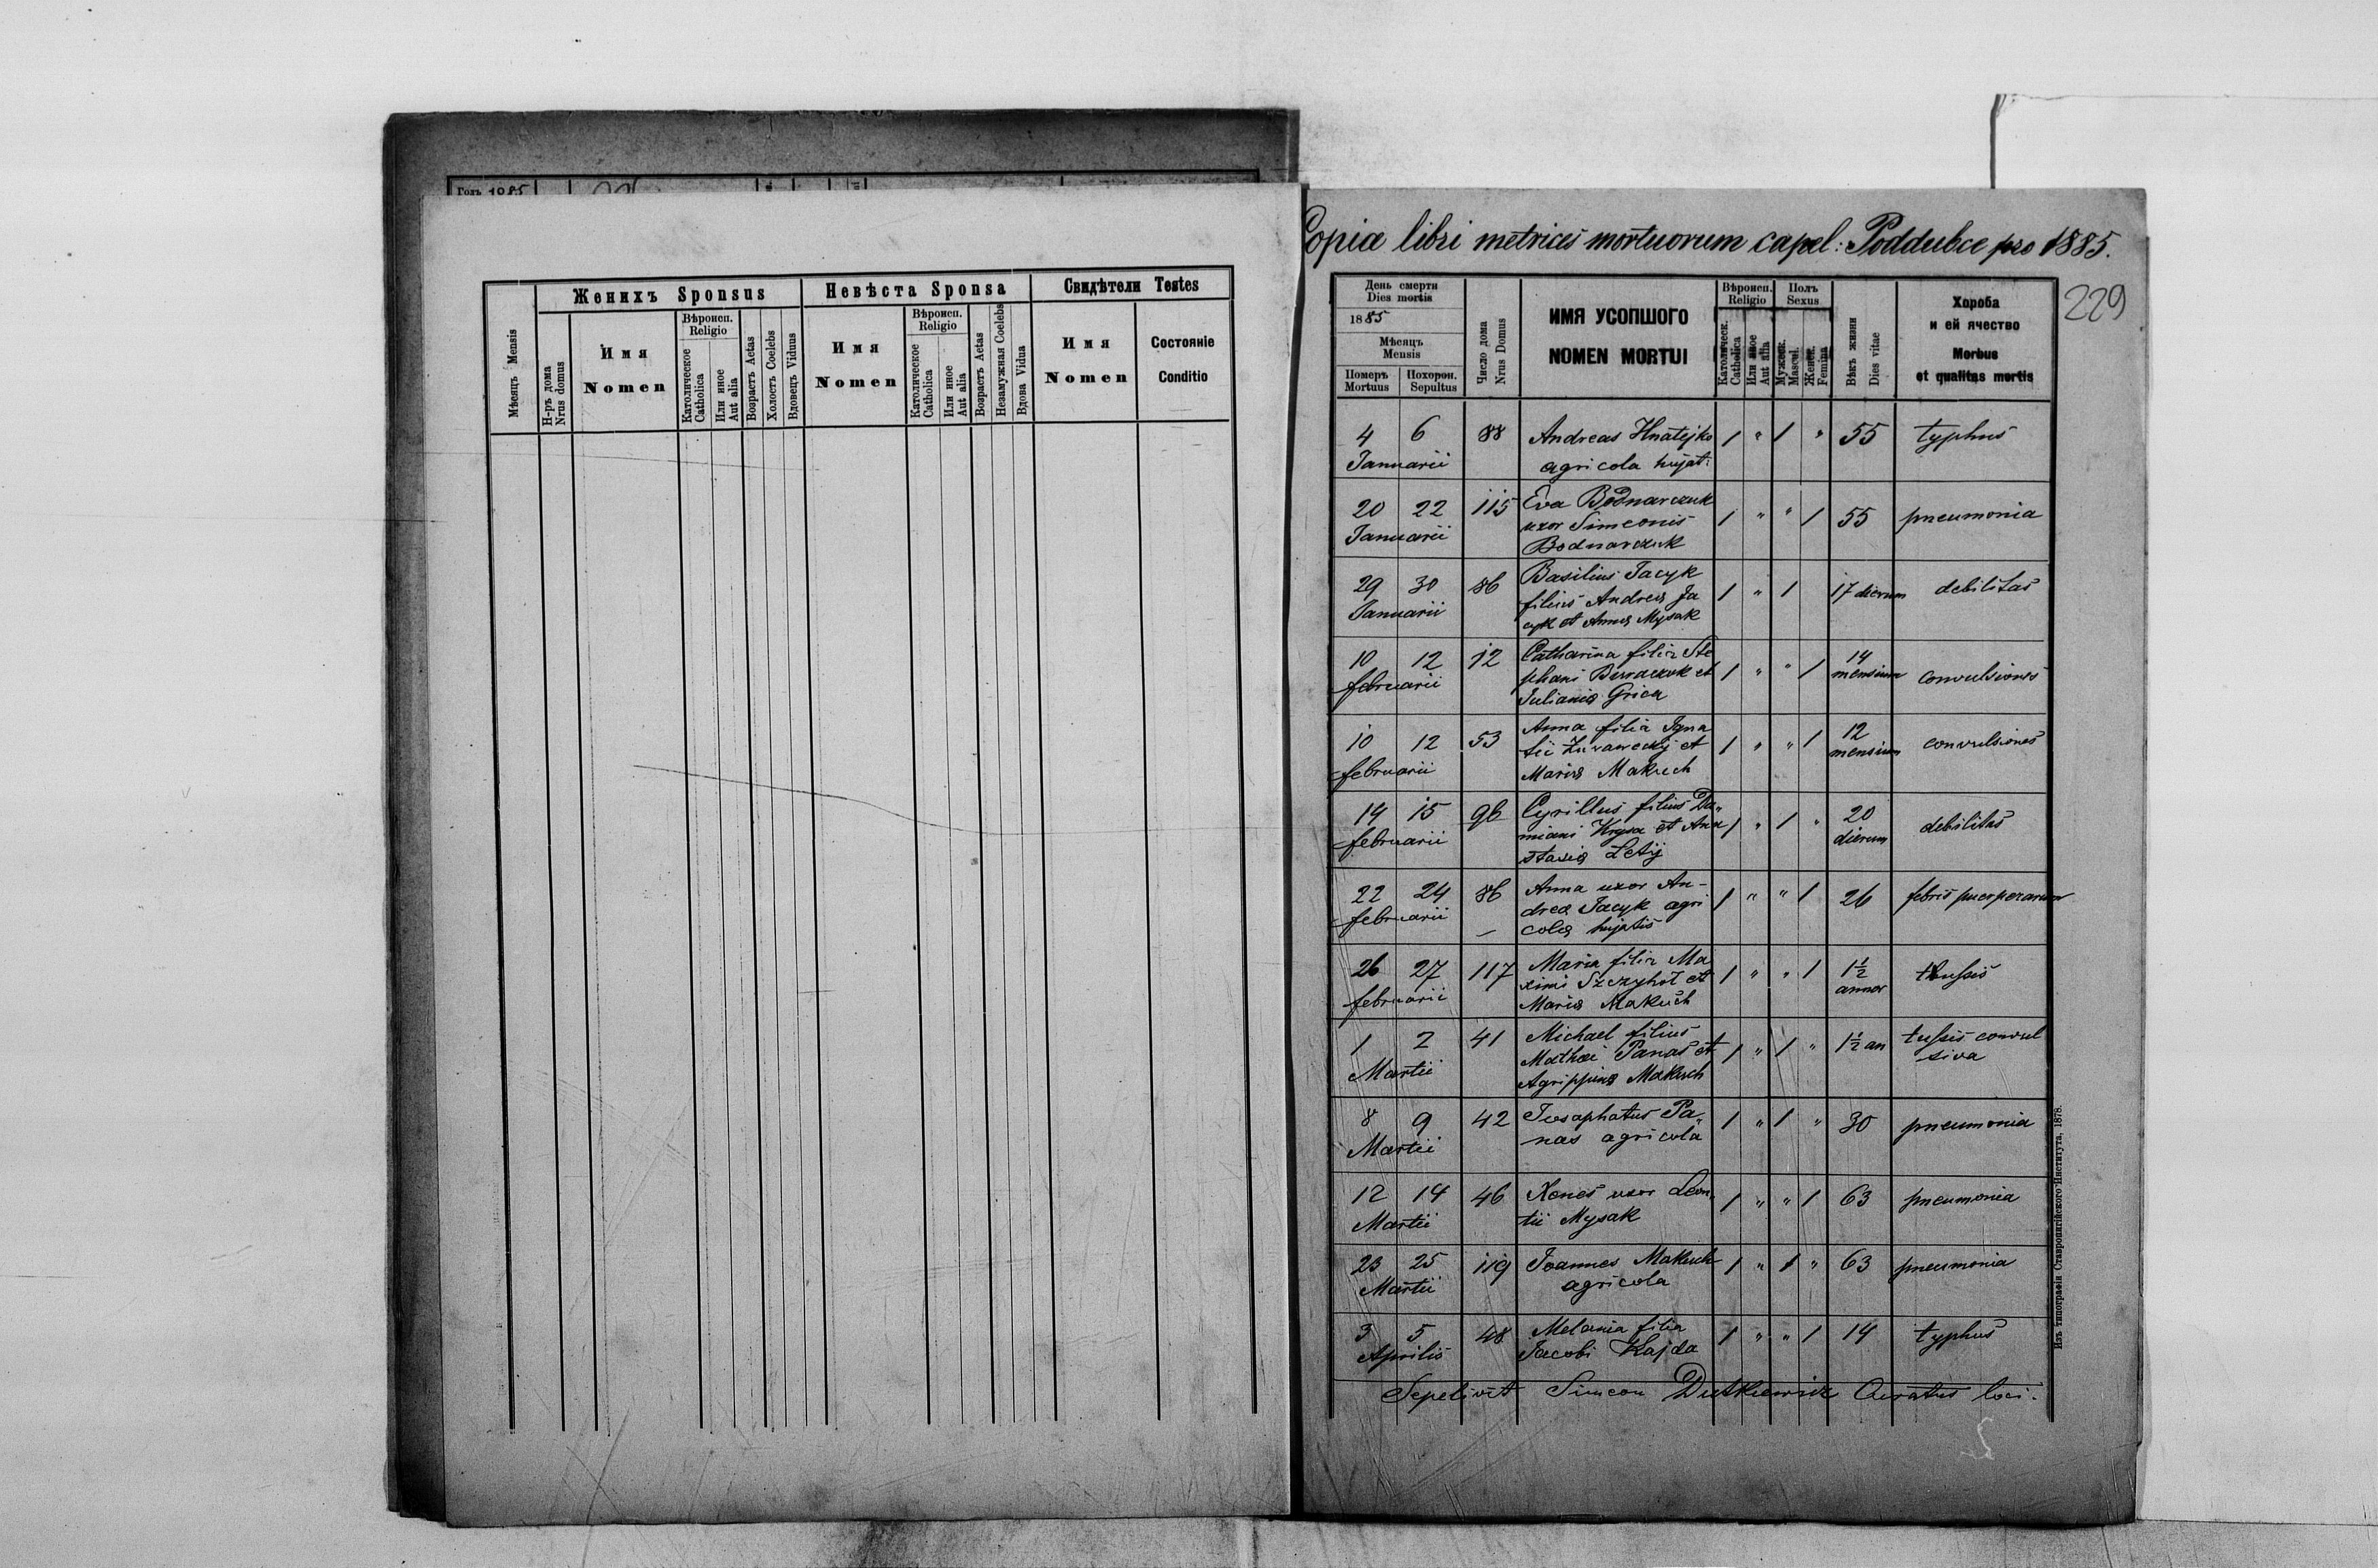 Годъ 1885
Женихъ Sponsus
Невѣста Sponsa
Свидѣтели Testes
Мѣсяцъ Mensis
Н-ръ дома
Nrus domus
Имя
Nomen
Вѣроисп.
Religio
Католическое
Catholica
Или иное
Aut alia
Возрастъ Aetas
Холостъ Coelebs
Вдовецъ Viduus
Имя
Nomen
Вѣроисп.
Religio
Католическое
Catholica
Или иное
Aut alia
Возрастъ Aetas
Незамужная Coelebs
Вдова Vidua
Имя
Nomen
Состояніе
Conditio
Copia libri metrices mortuorum capel: Poddubce pro 1885.
229
День смерти
Dies mortis
1885
Мѣсяцъ
Mensis
Померъ
Mortuus
Похорон.
Sepultus
Число дома
Nrus Domus
ИМЯ УСОПШОГО
NOMEN MORTUI
Вѣроисп.
Religio
Католическ.
Catholica
Или иное
Aut alia
Полъ
Sexus
Мужеск.
Mascul.
Женск.
Femina
Вѣкъ жизни
Dies vitae
Хороба
и ей ячество
Morbus
et qualitas mortis
4 6 88 Andreas Hnatejko 1 " 1 " 55 typhus
Januarii agricola hujat:
20 22 115 Eva Bodnarczuk 1 " " 1 55 pneumonia
Januarii uxor Simeonis
Bodnarczuk
29 30 86 Basilius Jacyk 1 " 1 17 dierum debilitas
Januarii filius Andreæ Ja
cyk et Annæ Mysak
10 12 12 Catharina filia Ste 1 " " 1 14 mensium convulsiones
februarii phani et
Julianæ
10 12 53 Anna filia Igna 1 " " 1 12 mensium convulsiones
februarii tii et
Mariæ Makuch
14 15 96 Cyrillus filius Da„ 1 " 1 " 20 dierum debilitas
februarii miani Krysa et Ana
stasiæ Letij
22 24 86 Anna uxor An- 1 " " 1 26 febris puerperarum
februarii dreæ Jacyk agri
colæ hujatis
26 27 117 Maria filia Ma 1 " " 1 1½ annor tussis
februarii ximi et
Mariæ Makuch
1 2 41 Michael filius 1 " 1 " 1½ an tussis convul
Martii Mathæi Panas et siva
Agrippinæ Makuch
8 9 42 Josaphatus Pa„ 1 " 1 " 30 pneumonia
Martii nas agricola
12 14 46 Xenes uxor Leon„ 1 " " 1 63 pneumonia
Martii tii Mysak
23 25 119 Joannes Makuch 1 " 1 " 63 pneumonia
Martii agricola
3 5 48 Melania filia 1 " " 1 14 typhus
Aprilis Jacobi Kajda
Sepelivit Simeon Dutkiewicz Curatus loci.
Изъ типографіи Ставропигійского Института, 1878.